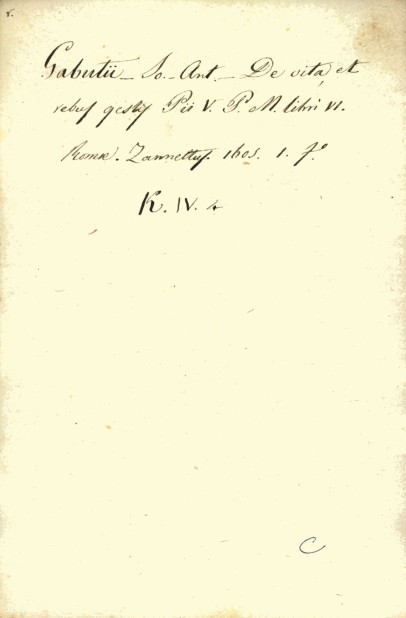 Gabutii - Io. - Ant. - De vita, et
rebus gestis Pii V. P. M. libri VI.
Romæ. Zannettus. 1605. 1. f.º
K. IV. 4
C